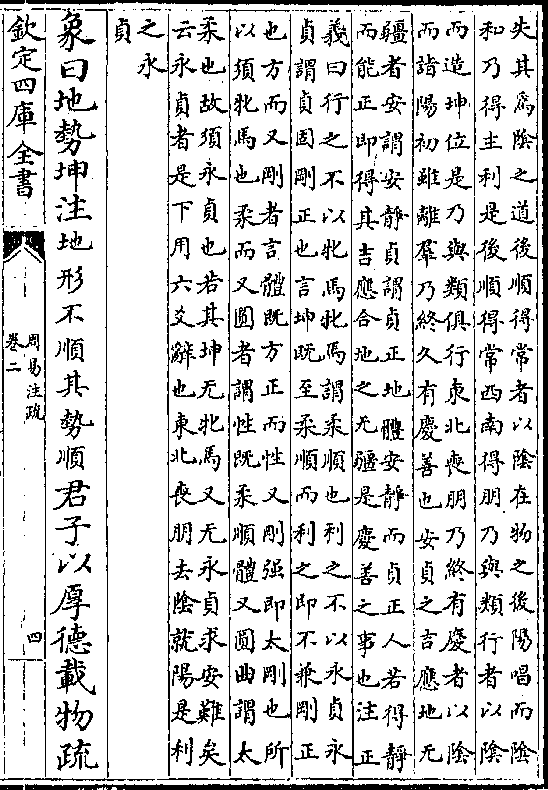 失其爲陰之道後順得常者以陰在物之後陽唱而陰
和乃得主利是後順得常西南得朋乃與類行者以陰
而造坤位是乃與類俱行東北喪朋乃終有慶者以陰
而詣陽初雖離羣乃終久有慶善也安貞之吉應地无
疆者安謂安靜貞謂貞正地體安靜而貞正人若得靜
而能正即得其吉應合地之无疆是慶善之事也注正
義曰行之不以牝馬牝馬謂柔順也利之不以永貞永
貞謂貞固剛正也言坤既至柔順而利之即不兼剛正
也方而又剛者言體既方正而性又剛强即太剛也所
以須牝馬也柔而又圓者謂性既柔順體又圓曲謂太
柔也故須永貞也若其坤无牝馬又无永貞求安難矣
云永貞者是下用六爻辭也東北喪朋去陰就陽是利
之永
貞
象曰地勢坤注地形不順其勢順君子以厚德載物疏
欽定四庫全書
周易注疏
卷二
四